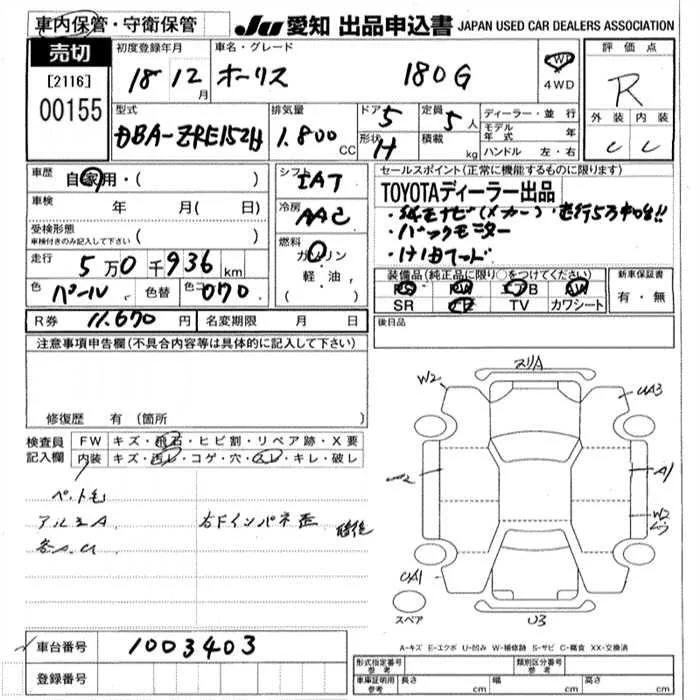 車内保管・守衛保管
JU 愛知 出品申込書 JAPAN USED CAR DEALERS ASSOCIATION
売切
[2116]
00155
初度登録年月
18 12月
車名・グレード
オーリス 180G
2WD
4WD
評価点
R
外装 内装
C C
型式
DBA-ZRE152H
排気量
1.800 CC
ドア 5
形状 H
定員 5人
積載 kg
ディーラー・並行
モデル年式 年
ハンドル 左・右
車歴 自家用・( )
車検 年 月( 日)
受検形態
車検付きのみ記入して下さい ( )
走行 5万0千936km
色 パール 色替 色コード 070
シフト IAT
冷房 AAC
燃料 ガソリン
軽・油
( )
R券 11.670円 名変期限 月 日
セールスポイント(正常に機能するものに限ります)
TOYOTAディーラー出品
・純正ナビ(メーカー)・走行5万km台!!
・バックモニター
装備品(純正品に限り○をつけてください)
PS PW エアB AW
SR TV カワシート
新車保証書
有・無
後日品
注意事項申告欄(不具合内容等は具体的に記入して下さい)
修復歴 有(箇所
検査員記入欄
FW キズ・飛石・ヒビ割・リペア跡・X要
内装 キズ・汚レ・コゲ・穴・スレ・キレ・破レ
ペット毛
アルミA
各A.U
右Fインパネ歪 修復
スリA
W2
UA3
A1
W2
UA1
U3
スペア
A-キズ E-エクボ U-凹み W-補修跡 S-サビ C-腐食 XX-交換済
車台番号 1003403
登録番号
形式指定番号 参考
類別区分番号 参考
車庫証明用 参考 長さ cm 幅 cm 高さ cm